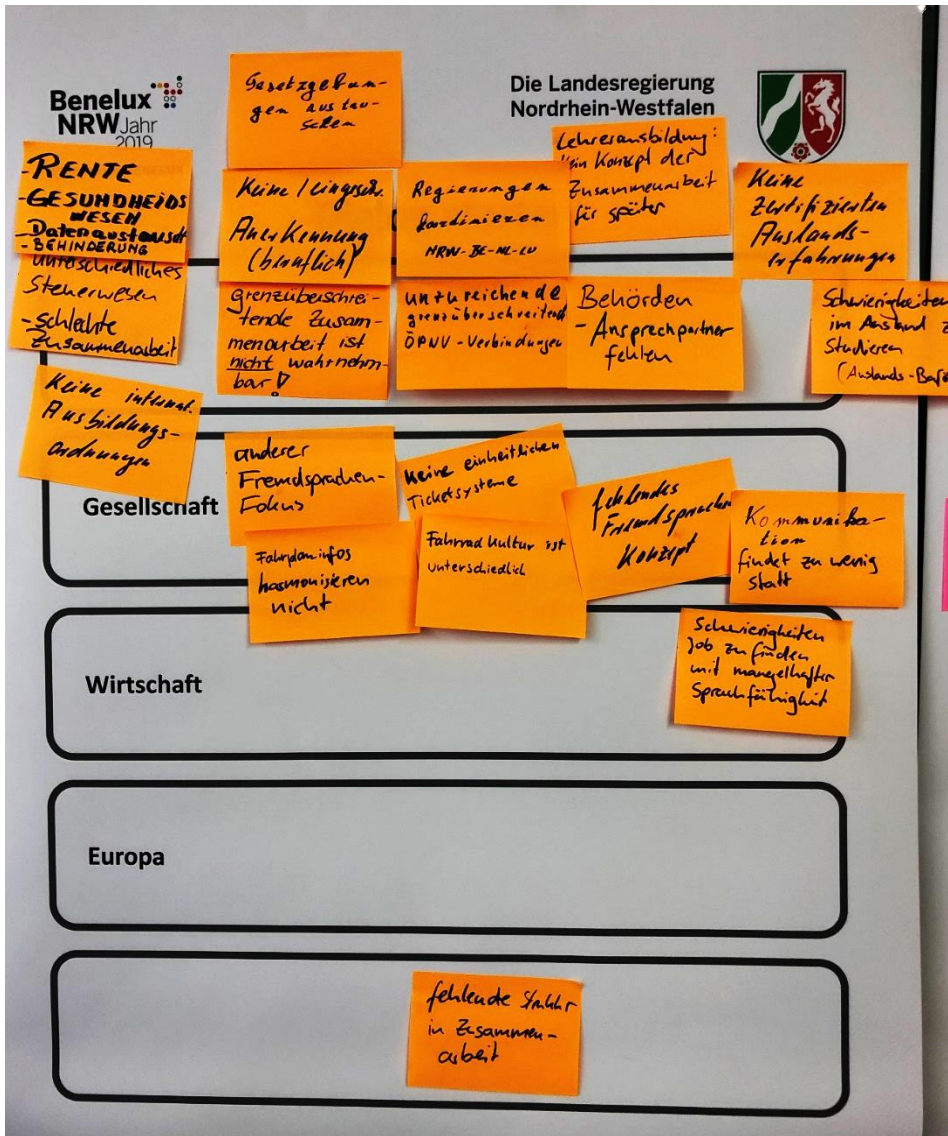 Benelux
NRW Jahr
2019
Die Landesregierung
Nordrhein-Westfalen
Gesetzgebun-
gen austau-
schen
- RENTE
- GESUNDHEIDS
WESEN
- Datenaustausch
- BEHINDERUNG
unterschiedliches
Steuerwesen
- schlechte
Zusammenarbeit
Keine / eingeschr.
Anerkennung
(beruflich)
Regierungen
koordinieren
NRW-BE-NL-LU
Lehrerausbildung:
kein Konzept der
Zusammenarbeit
für später
Keine
Zertifizierten
Auslands-
erfahrungen
grenzüberschrei-
tende Zusam-
menarbeit ist
nicht wahrnehm-
bar!
unzureichende
grenzüberschreitende
ÖPNV-Verbindungen
Behörden
- Ansprechpartner
fehlen
Schwierigkeiten
im Ausland
Studieren
Keine internat.
Ausbildungs-
ordnungen
Gesellschaft
anderer
Fremdsprachen-
Fokus
Keine einheitlichen
Ticketsysteme
fehlendes
Fremdsprachen
Konzept
Kommunika-
tion
findet zu wenig
statt
Fahrplaninfos
harmonisieren
nicht
Fahrrad Kultur ist
unterschiedlich
Wirtschaft
Schwierigkeiten
Job zu finden
mit mangelhafter
Sprachfähigkeit
Europa
fehlende Struktur
in Zusammen-
arbeit